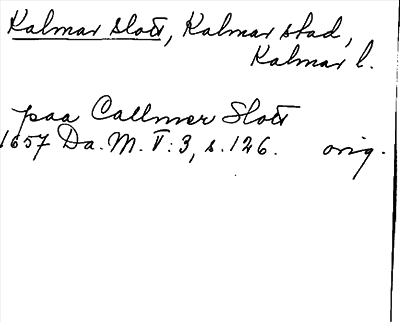 Kalmar slott, Kalmar stad,
Kalmar l.
paa Callmer Slott
1657 Da. M. V: 3, s. 126. orig.